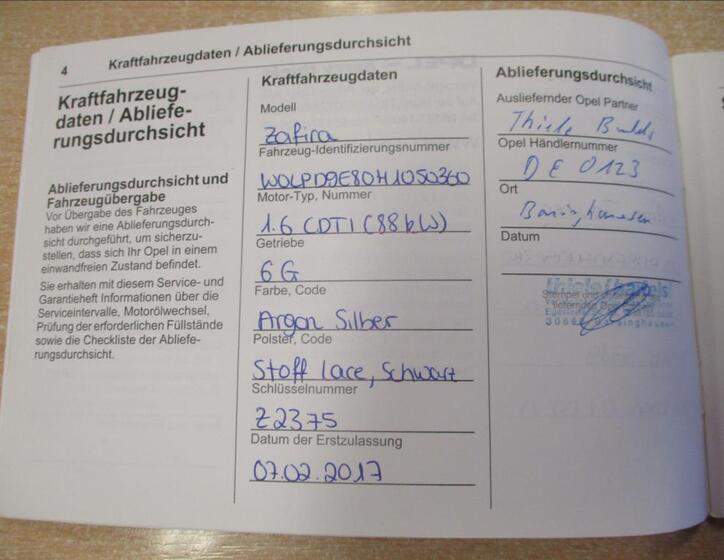 4
Kraftfahrzeugdaten / Ablieferungsdurchsicht
Kraftfahrzeug-
daten / Abliefe-
rungsdurchsicht
Ablieferungsdurchsicht und
Fahrzeugübergabe
Vor Übergabe des Fahrzeuges
haben wir eine Ablieferungsdurch-
sicht durchgeführt, um sicherzu-
stellen, dass sich Ihr Opel in einem
einwandfreien Zustand befindet.
Sie erhalten mit diesem Service- und
Garantieheft Informationen über die
Serviceintervalle, Motorölwechsel,
Prüfung der erforderlichen Füllstände
sowie die Checkliste der Abliefe-
rungsdurchsicht.
Kraftfahrzeugdaten
Modell
Zafira
Fahrzeug-Identifizierungsnummer
WOLPD9E80H1050360
Motor-Typ, Nummer
1.6 CDTI (88kW)
Getriebe
6 G
Farbe, Code
Argon Silber
Polster, Code
Stoff lace, Schwarz
Schlüsselnummer
Z2375
Datum der Erstzulassung
07.02.2017
Ablieferungsdurchsicht
Ausliefernder Opel Partner
Thiele
Opel Händlernummer
DE 0123
Ort
Barsinghausen
Datum
Stempel und